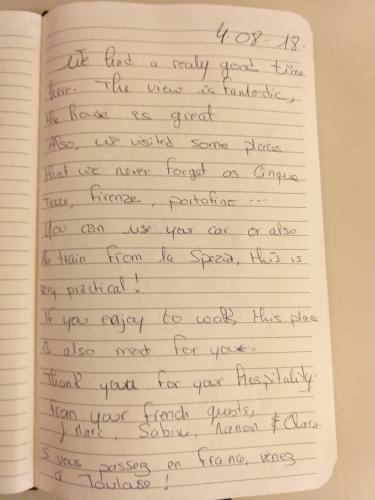 4.08-18.
We had a realy good time
here. The view is fantastic,
the house is great
Also, we visited some places
that we never forget as Cinque
Terre, Firenze, portofino ...
You can use your car or also
the train from la Spezia, this is
very practical!
If you enjoy to walk, this place
is also meet for you.
Thank you for your Hospitality.
From your French guests,
Marc, Sabine, Manon & Clara
Si vous passez en France, venez
à Toulouse!